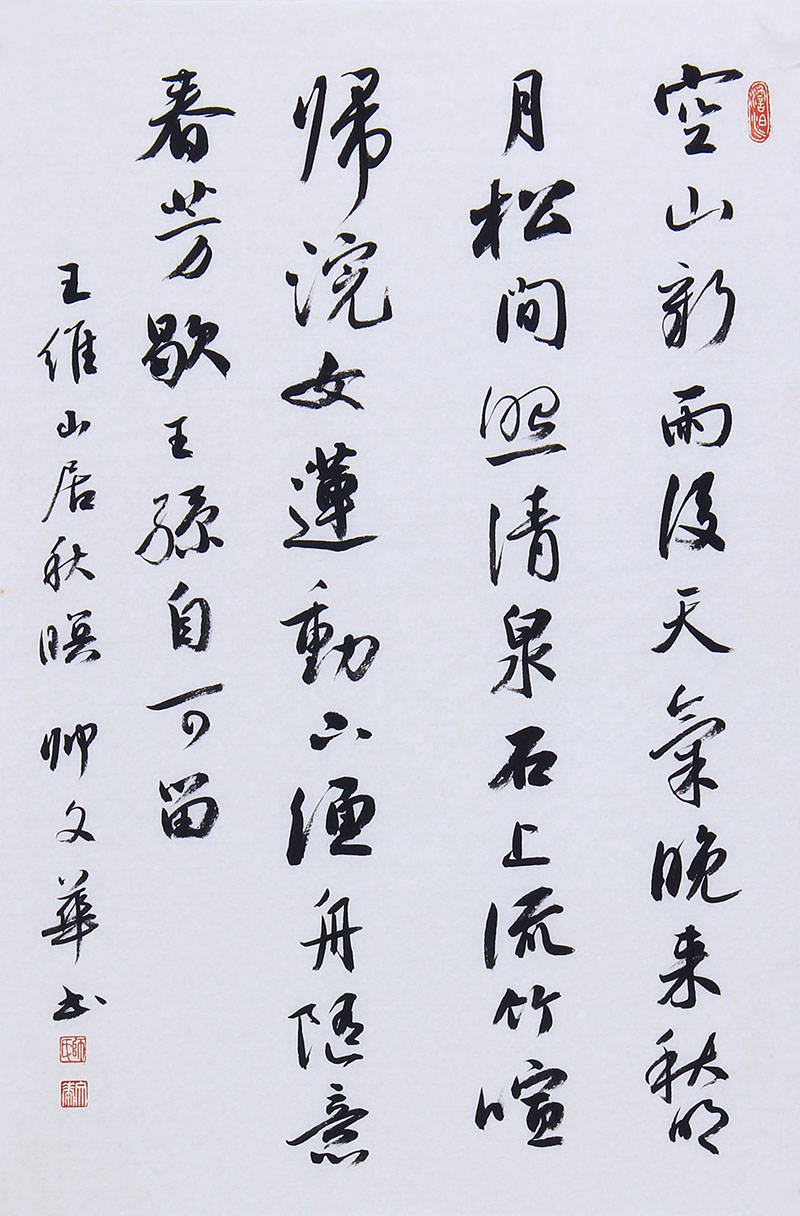 空山新雨後天氣晚来秋明
月松間照清泉石上流竹喧
帰浣女蓮動下渔舟随意
春芳歇王孫自可留
王維山居秋暝 师文華书